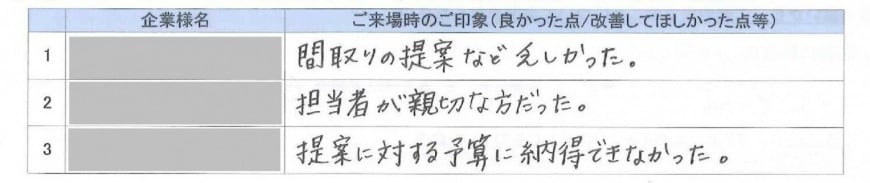 企業様名 ご来場時のご印象(良かった点/改善してほしかった点等)
1 間取りの提案など しかった。
2 担当者が親切な方だった。
3 提案に対する予算に納得できなかった。